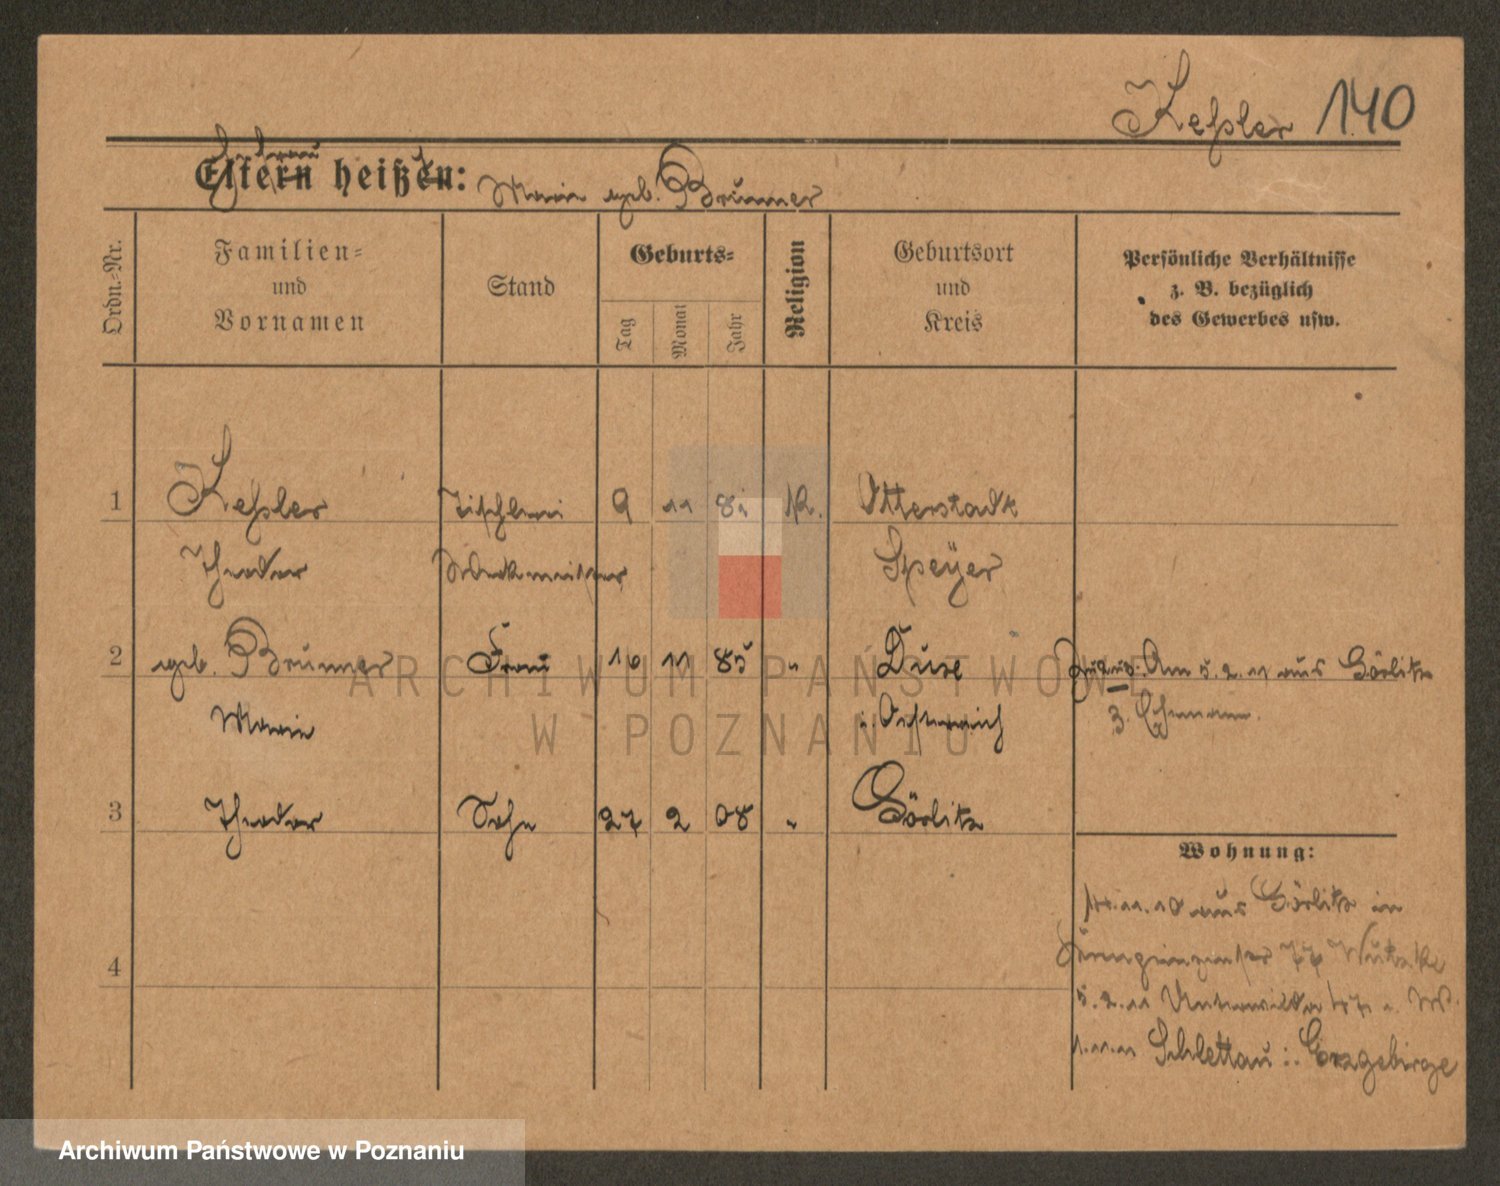 Keßler 140
Ehefrau
Eltern heißen: Marie geb. Brunner
Ordn.-Nr.
Familien-
und
Vornamen
Stand
Geburts-
Tag
Monat
Jahr
Religion
Geburtsort
und
Kreis
Persönliche Verhältnisse
z. B. bezüglich
des Gewerbes usw.
1 Keßler Tischlerei 9 11 K. Otterstadt
Theodor Speyer
2 geb. Brunner Frau 10 11 85 " Dux Zuzug: Am 5.2.11 aus Görlitz
Marie i. Oesterreich z. Ehemann.
3 Theodor Sohn 27 2 08 " Görlitz
Wohnung:
11.10 aus Görlitz in
4
5.2.11 Unterwilda
1.11.11 Schlettau i. Erzgebirge
ARCHIWUM PAŃSTWOWE
W POZNANIU
Archiwum Państwowe w Poznaniu